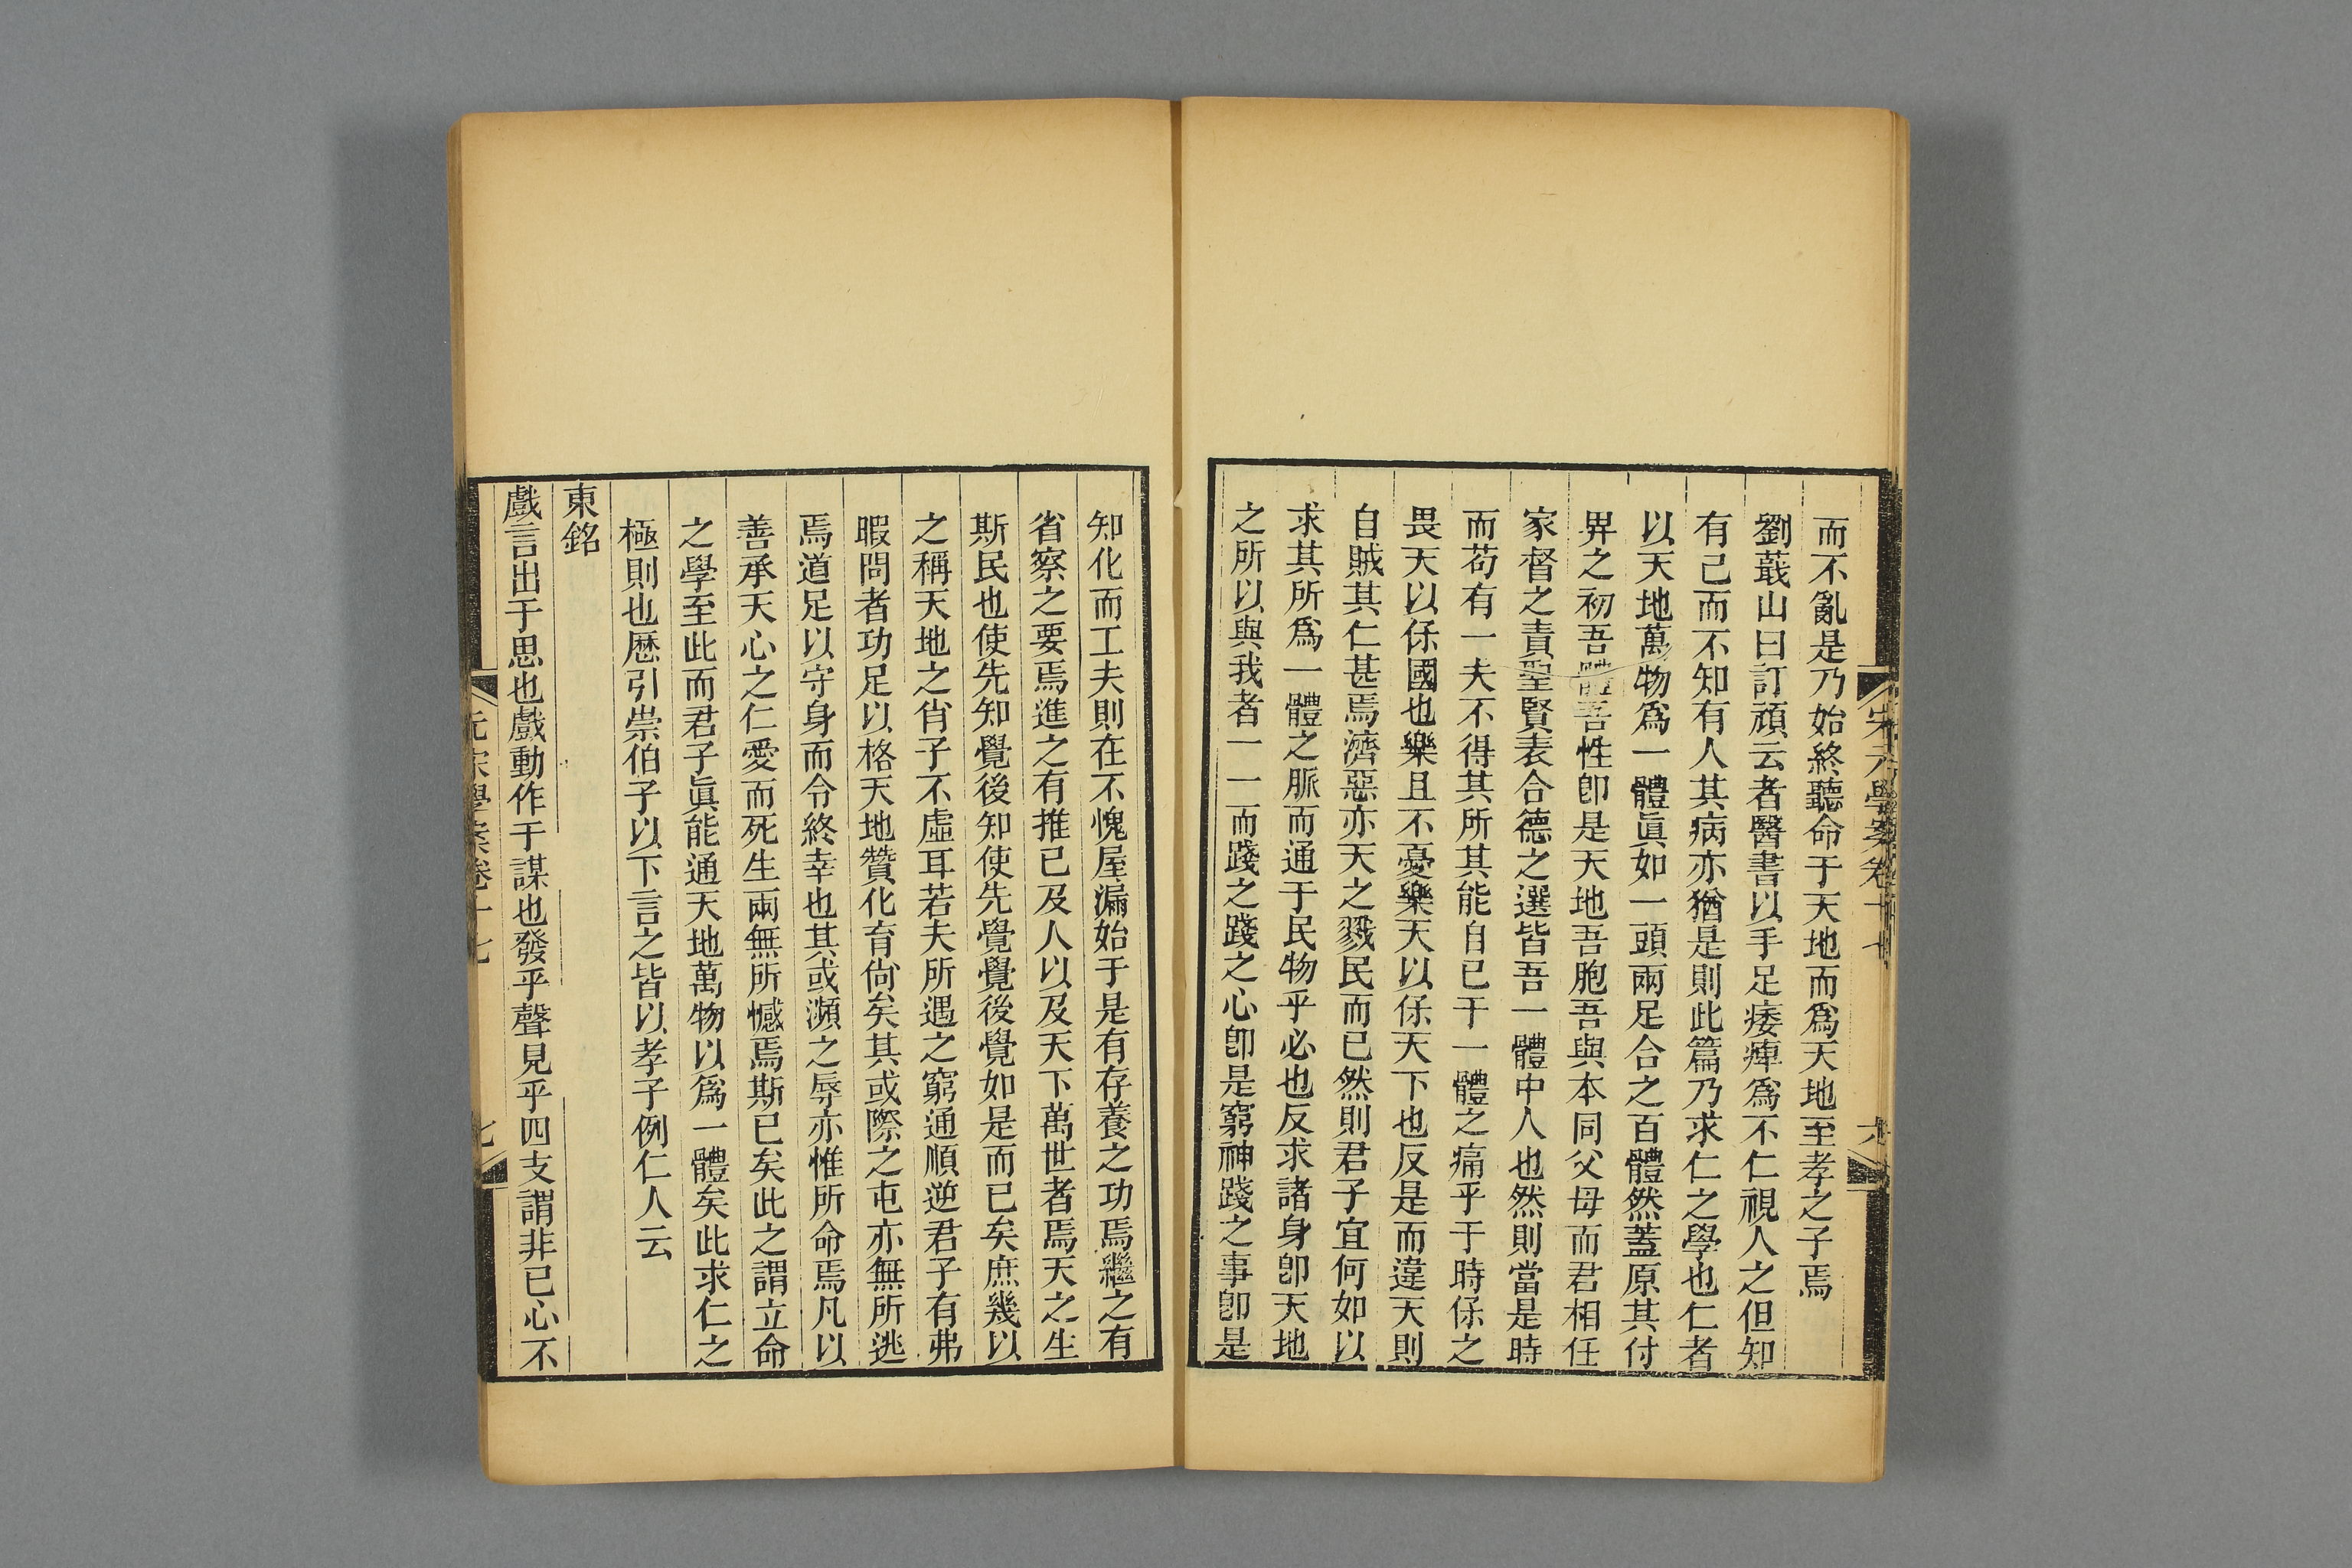 而不亂是乃始終聽命于天地而爲天地至孝之子焉
劉蕺山曰訂頑云者醫書以手足痿痺爲不仁視人之但知
有己而不知有人其病亦猶是則此篇乃求仁之學也仁者
以天地萬物爲一體眞如一頭兩足合之百體然蓋原其付
畀之初吾體吾性卽是天地吾胞吾與本同父母而君相任
家督之責聖賢表合德之選皆吾一體中人也然則當是時
而苟有一夫不得其所其能自已于一體之痛乎于時保之
畏天以保國也樂且不憂樂天以保天下也反是而違天則
自賊其仁甚焉濟惡亦天之戮民而已然則君子宜何如以
求其所爲一體之脈而通于民物乎必也反求諸身卽天地
之所以與我者一一而踐之踐之心卽是窮神踐之事卽是
知化而工夫則在不愧屋漏始于是有存養之功焉繼之有
省察之要焉進之有推己及人以及天下萬世者焉天之生
斯民也使先知覺後知使先覺覺後覺如是而已矣庶幾以
之稱天地之肖子不虛耳若夫所遇之窮通順逆君子有弗
暇問者功足以格天地贊化育尙矣其或際之屯亦無所逃
焉道足以守身而令終幸也其或瀕之辱亦惟所命焉凡以
善承天心之仁愛而死生兩無所憾焉斯已矣此之謂立命
之學至此而君子眞能通天地萬物以爲一體矣此求仁之
極則也歷引崇伯子以下言之皆以孝子例仁人云
東銘
戲言出于思也戲動作于謀也發乎聲見乎四支謂非己心不